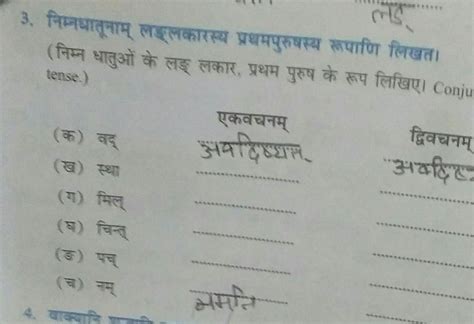 लङ्
3. निम्नधातूनाम् लङ्लकारस्य प्रथमपुरुषस्य रूपाणि लिखत।
(निम्न धातुओं के लङ् लकार, प्रथम पुरुष के रूप लिखिए। Conju
tense.)
एकवचनम् द्विवचनम्
(क) वद्
(ख) स्था
(ग) मिल्
(घ) चिन्त्
(ङ) पच्
(च) नम् नमति
4. वाक्यानि